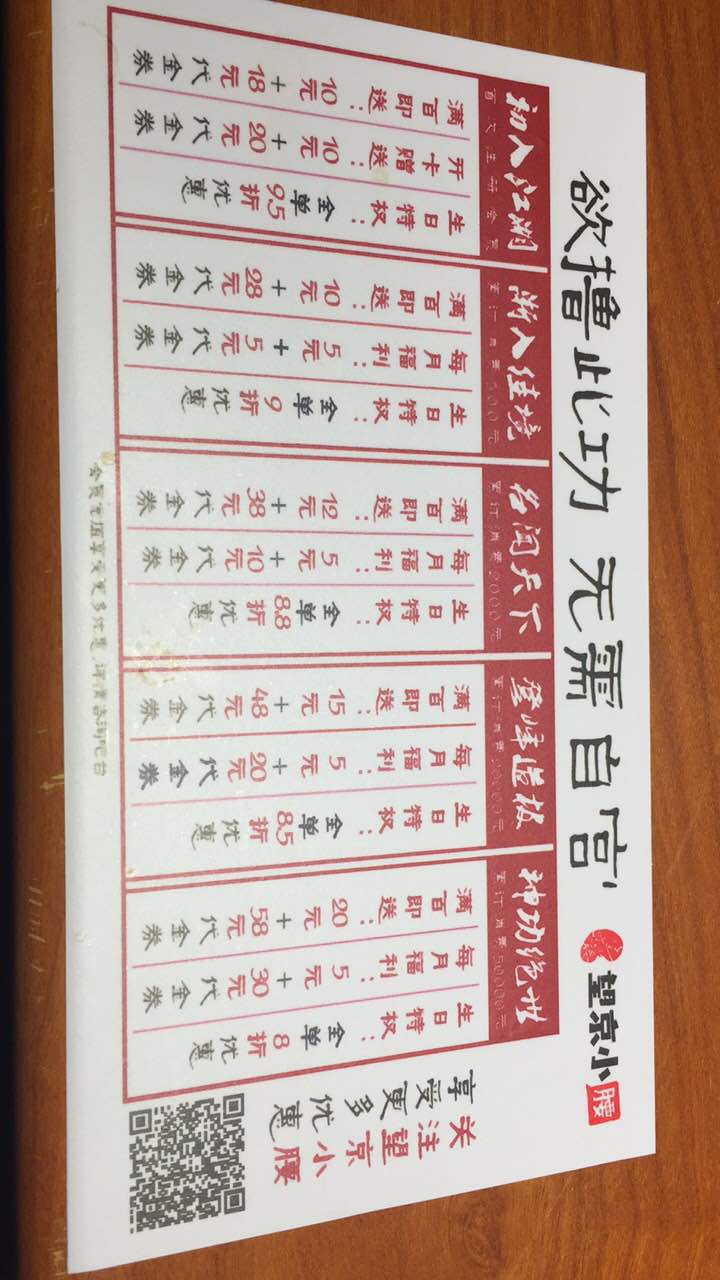 欲撸此功 无需自宫
望京小腰
初入江湖
首次注册会员
满百即送：10元+18元代金券
开卡赠送：10元+20元代金券
生日特权：全单9.5折优惠
渐入佳境
累计消费500元
满百即送：10元+28元代金券
每月福利：5元+5元代金券
生日特权：全单9折优惠
名闻天下
累计消费2000元
满百即送：12元+38元代金券
每月福利：5元+10元代金券
生日特权：全单8.8折优惠
登峰造极
累计消费20000元
满百即送：15元+48元代金券
每月福利：5元+20元代金券
生日特权：全单8.5折优惠
神功绝世
累计消费50000元
满百即送：20元+58元代金券
每月福利：5元+30元代金券
生日特权：全单8折优惠
会员充值享受更多优惠，详情咨询吧台
关注望京小腰
享受更多优惠